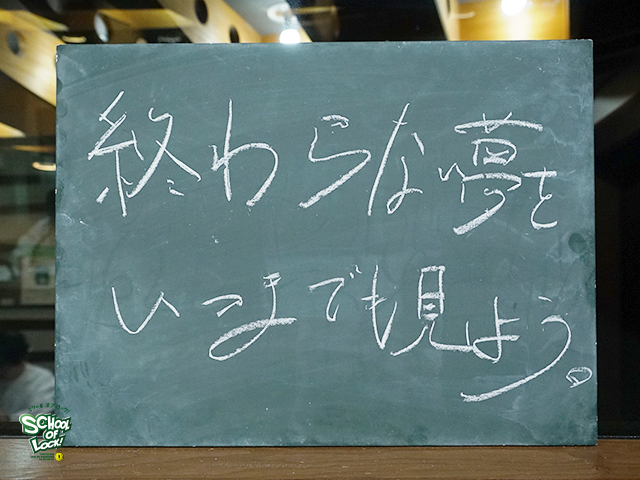 終わらな夢を
いつまでも見よう。
SCHOOL
OF
LOCK!